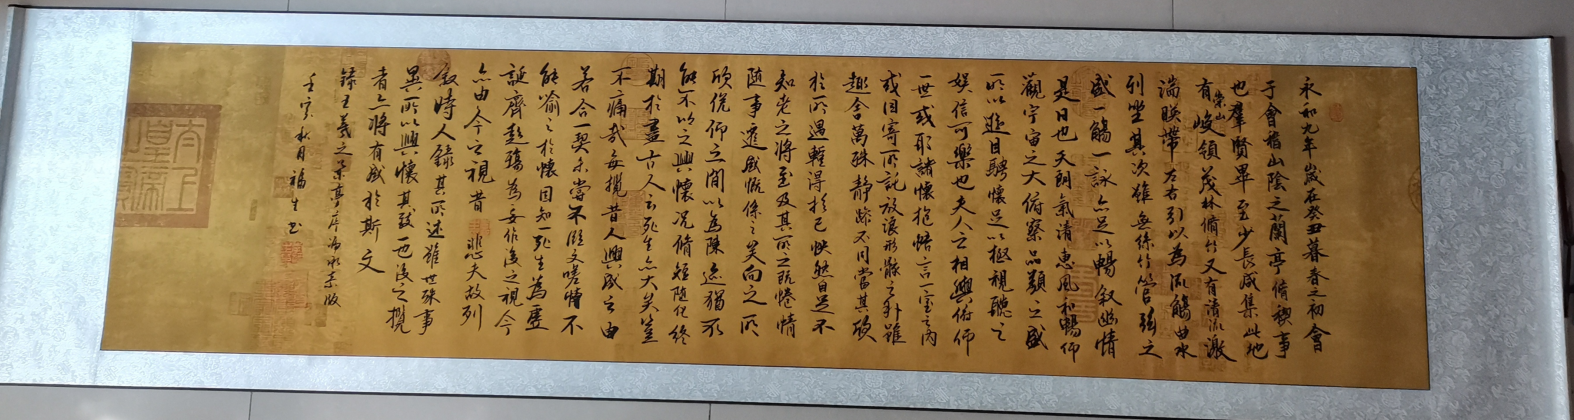 永和九年歲在癸丑暮春之初會
于會稽山陰之蘭亭脩稧事
也羣賢畢至少長咸集此地
有崇山峻領茂林脩竹又有清流激
湍暎帶左右引以為流觴曲水
列坐其次雖無絲竹管弦之
盛一觴一詠亦足以暢敘幽情
是日也天朗氣清惠風和暢仰
觀宇宙之大俯察品類之盛
所以遊目騁懷足以極視聽之
娛信可樂也夫人之相與俯仰
一世或取諸懷抱悟言一室之內
或因寄所託放浪形骸之外雖
趣舍萬殊靜躁不同當其欣
於所遇輕得於己快然自足不
知老之將至及其所之既惓情
隨事遷感慨係之矣向之所
欣俛仰之間以為陳迹猶不
能不以之興懷況脩短隨化終
期於盡古人云死生亦大矣豈
不痛哉每攬昔人興感之由
若合一契未嘗不臨文嗟悼不
能喻之於懷固知一死生為虛
誕齊彭殤為妄作後之視今
亦由今之視昔悲夫故列
敘時人錄其所述雖世殊事
異所以興懷其致一也後之攬
者亦將有感於斯文
錄王羲之蘭亭序馮承素版
壬寅秋月福生書
太上
皇帝